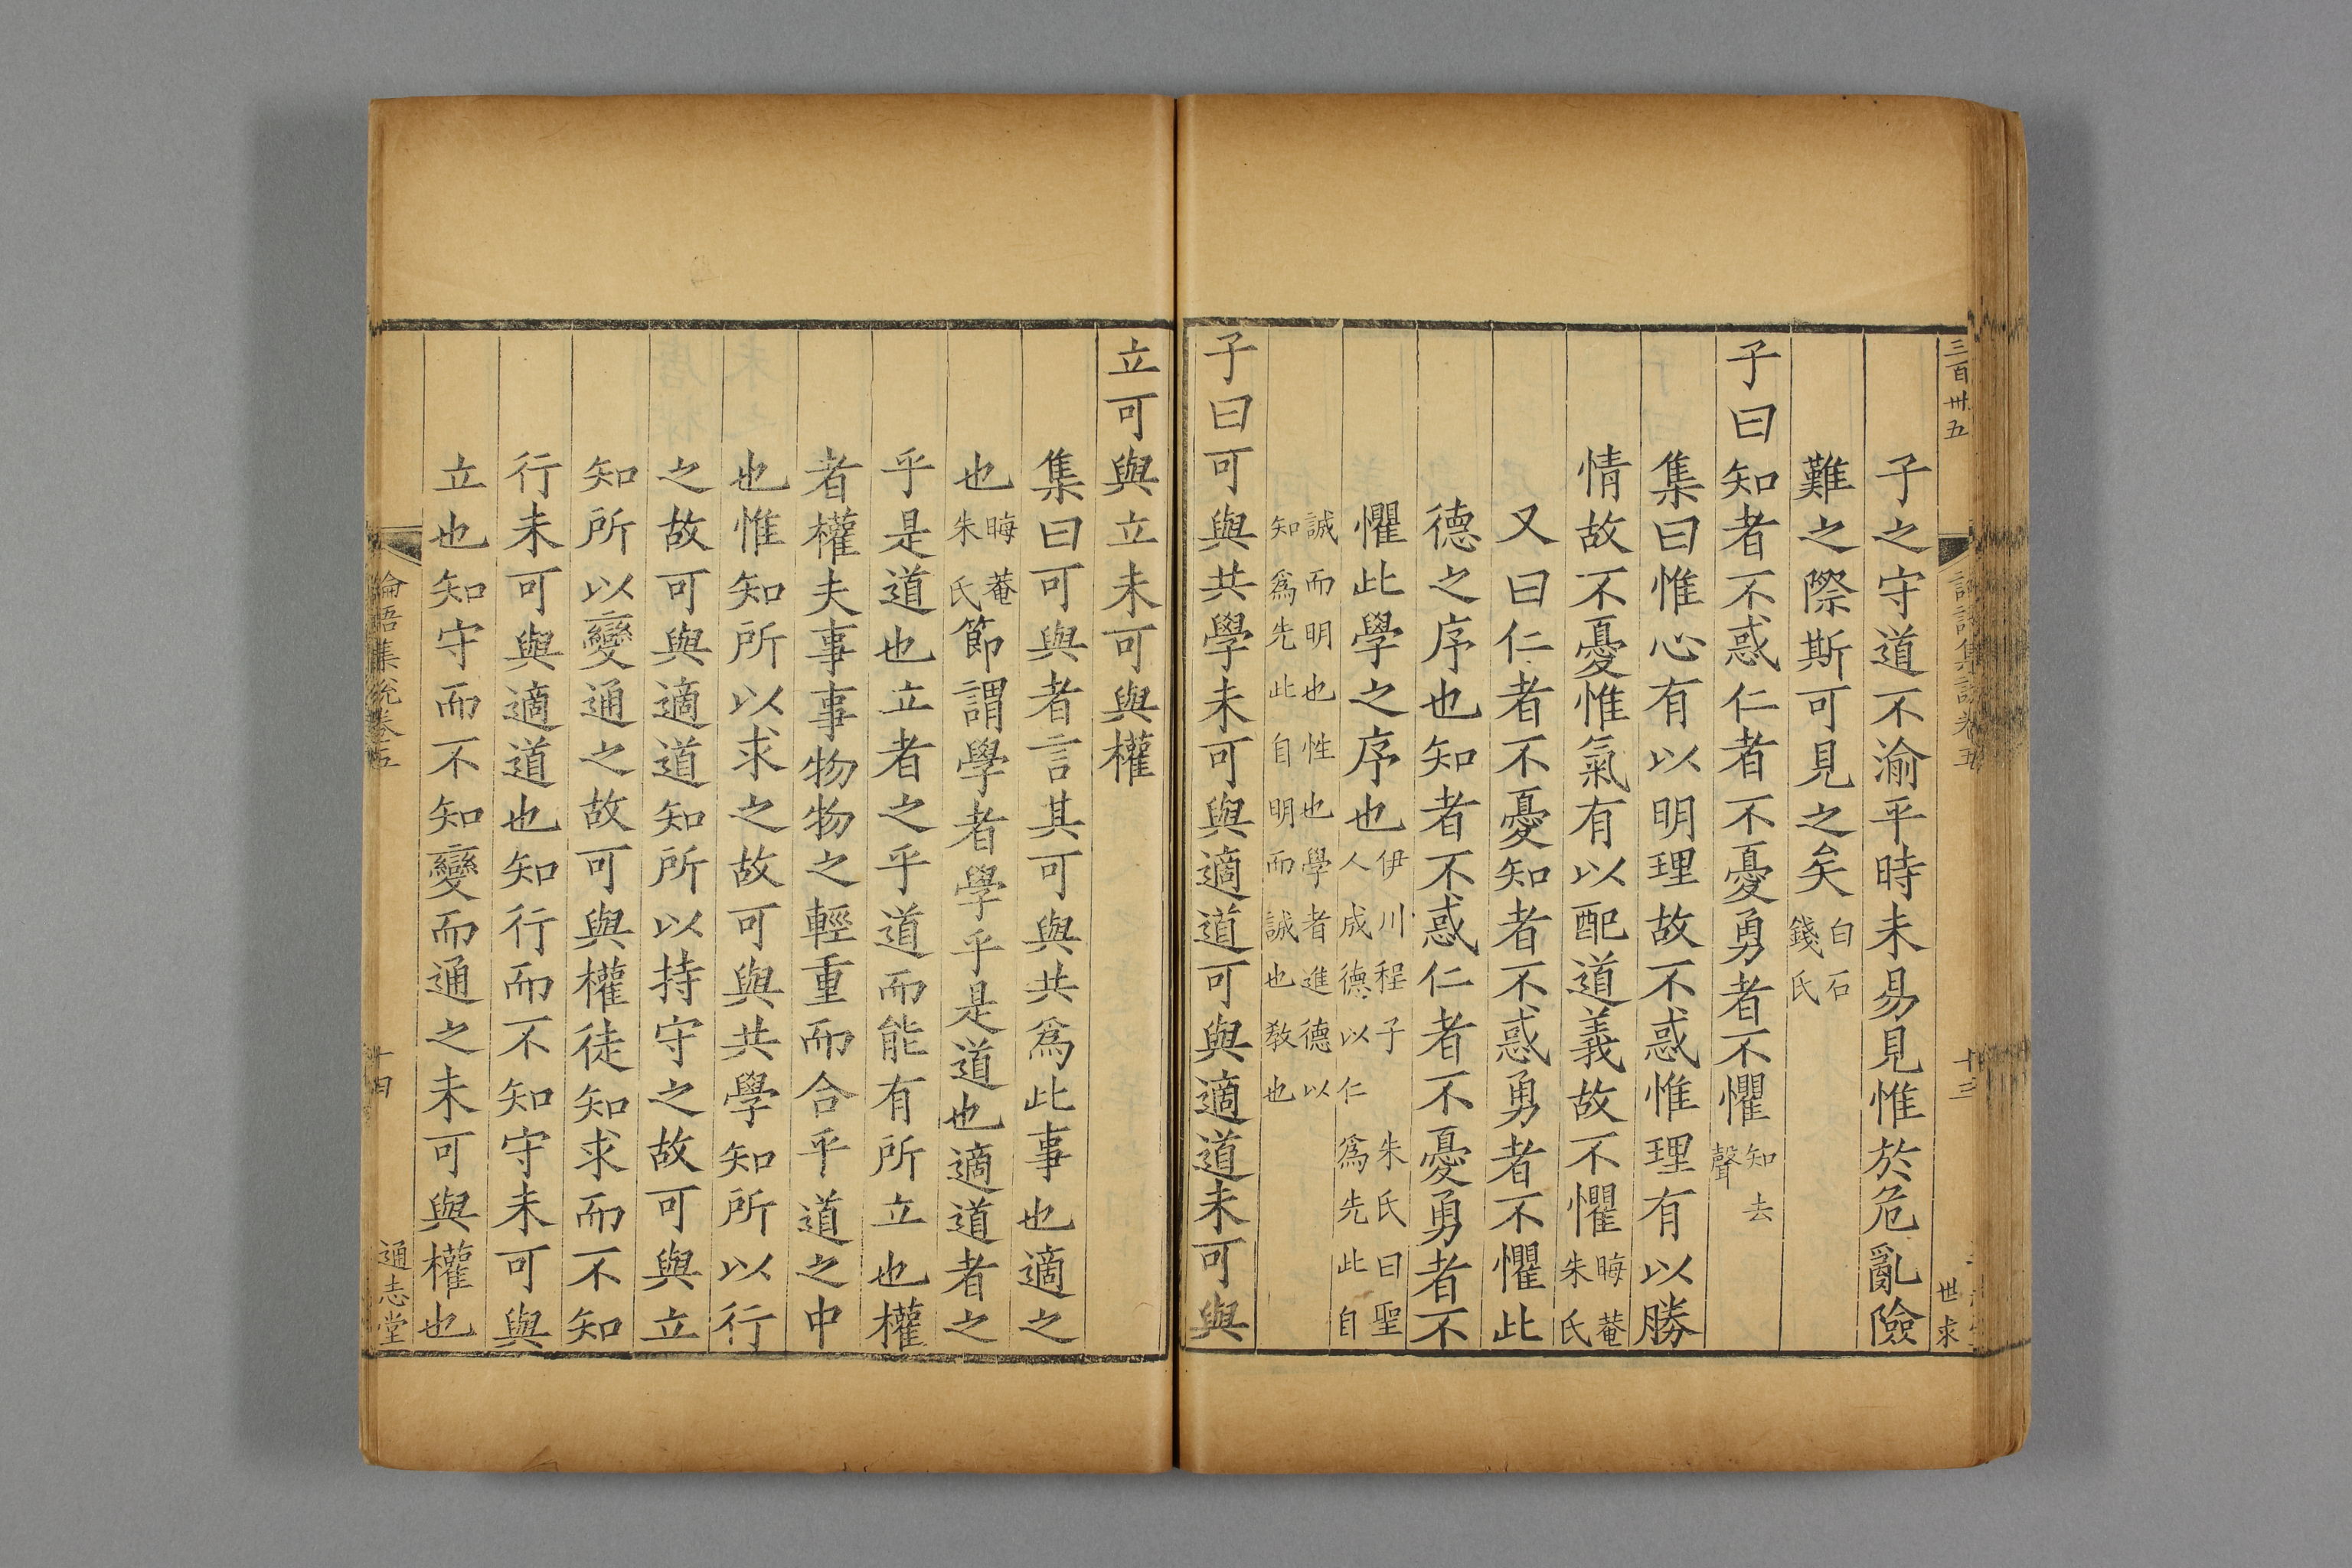 三百卅五
十三
世求
子之守道不渝平時未易見惟於危亂險
難之際斯可見之矣白石錢氏
子曰知者不惑仁者不憂勇者不懼知去聲
集曰惟心有以明理故不惑惟理有以勝
情故不憂惟氣有以配道義故不懼晦菴朱氏
又曰仁者不憂知者不惑勇者不懼此
德之序也知者不惑仁者不憂勇者不
懼此學之序也伊川程子 朱氏曰聖人成德以仁爲先此自
誠而明也性也學者進德以知爲先此自明而誠也敎也
子曰可與共學未可與適道可與適道未可與
立可與立未可與權
集曰可與者言其可與共爲此事也適之
也晦菴朱氏節謂學者學乎是道也適道者之
乎是道也立者之乎道而能有所立也權
者權夫事事物物之輕重而合乎道之中
也惟知所以求之故可與共學知所以行
之故可與適道知所以持守之故可與立
知所以變通之故可與權徒知求而不知
行未可與適道也知行而不知守未可與
立也知守而不知變而通之未可與權也
論語集說卷五
十四
通志堂